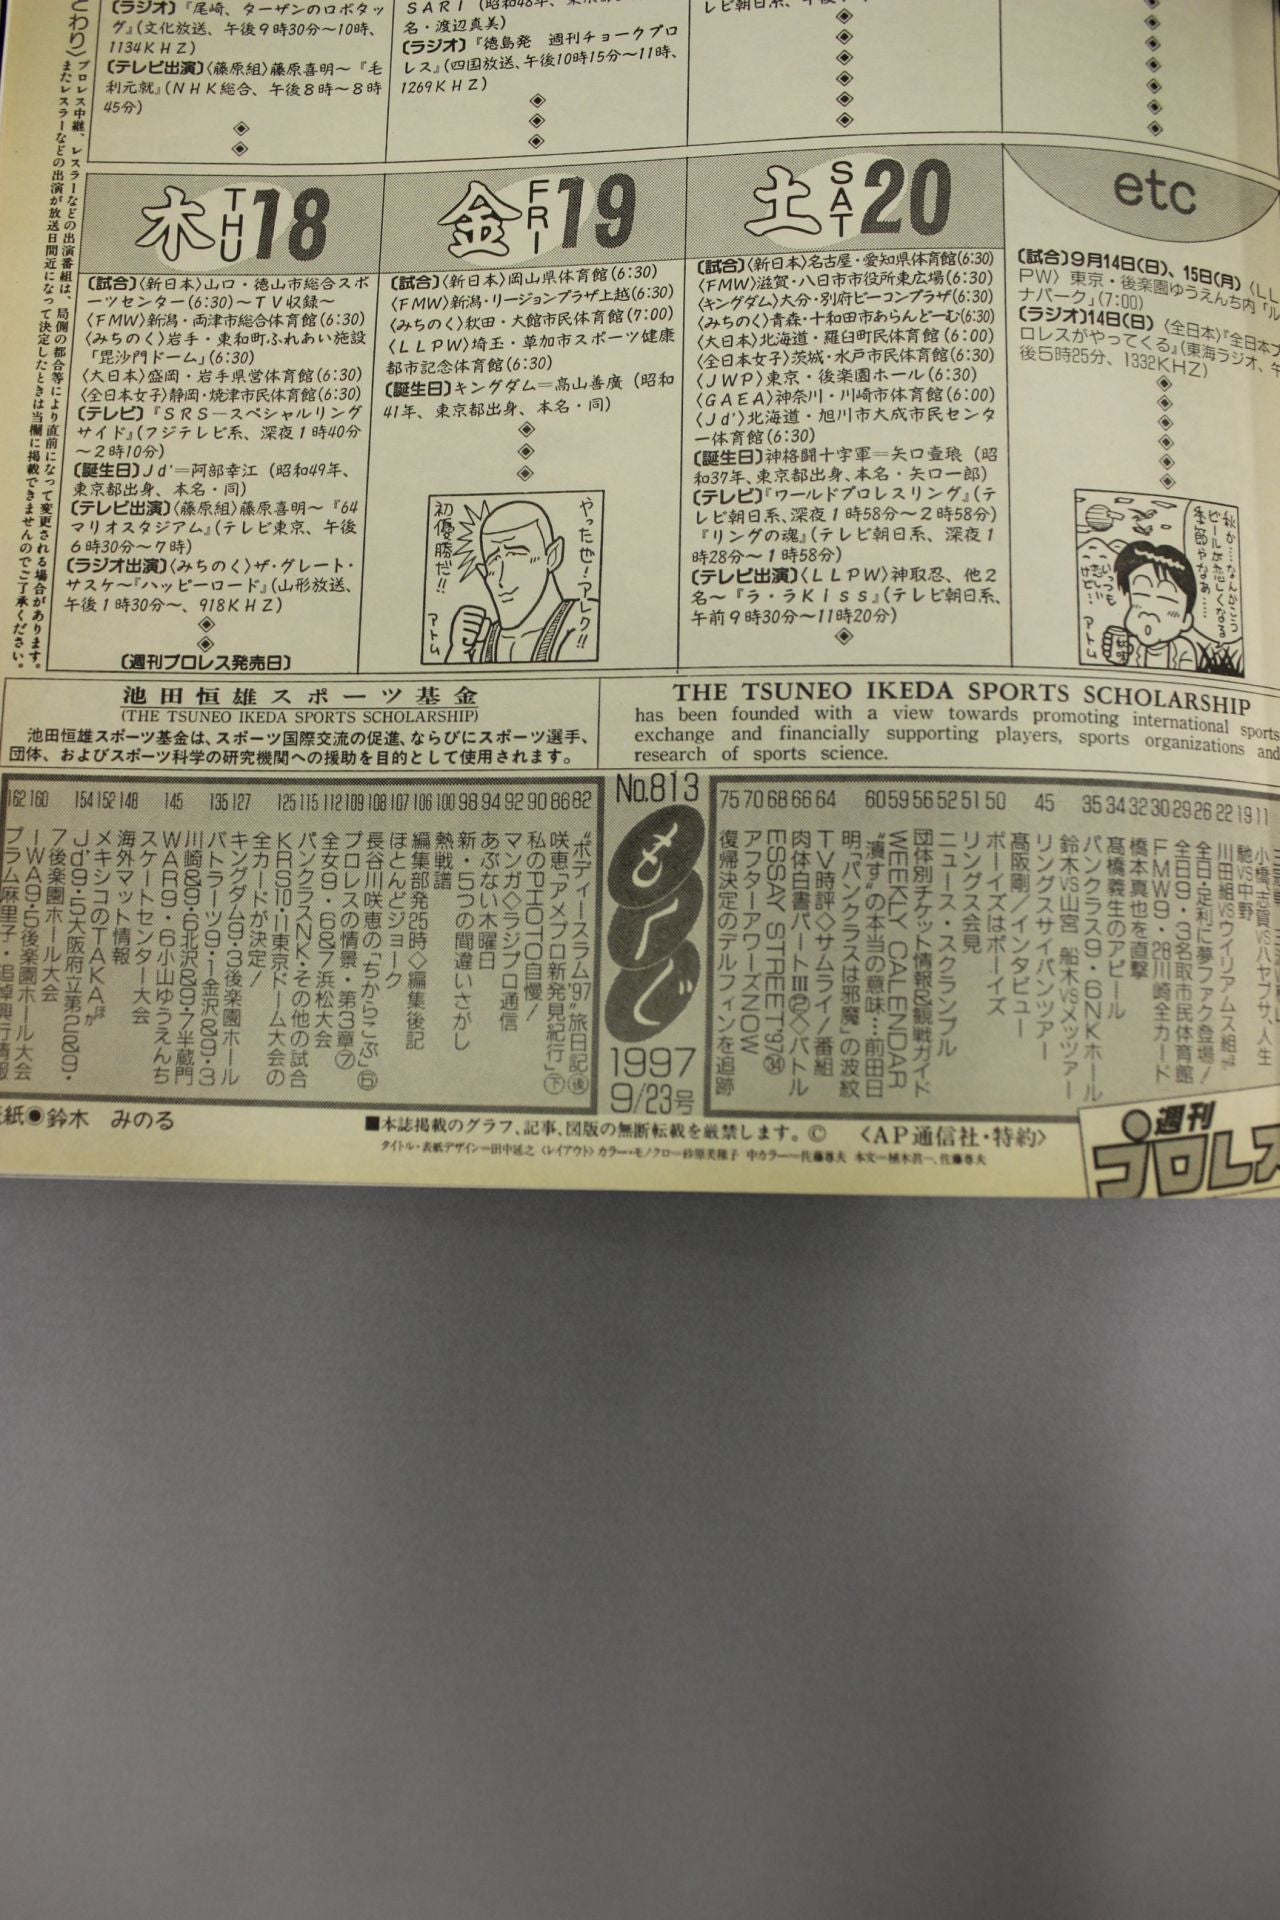 〔ラジオ〕『尾崎、ターザンのロボタッ
グ』(文化放送、午後9時30分〜10時、
1134KHZ)
〔テレビ出演〕〈藤原組〉藤原喜明〜『毛
利元就』(NHK総合、午後8時〜8時
45分)
名・渡辺真美)
〔ラジオ〕『徳島発 週刊チョークプロ
レス』(四国放送、午後10時15分〜11時、
1269KHZ)
プロレス中継、レスラーなどの出演番組は、局側の都合等により直前になって変更される場合があります。
またレスラーなどの出演が放送日間近になって決定したときは当欄に掲載できませんのでご了承ください。
木 THU 18
〔試合〕〈新日本〉山口・徳山市総合スポ
ーツセンター(6:30)〜TV収録〜
〈FMW〉新潟・両津市総合体育館(6:30)
〈みちのく〉岩手・東和町ふれあい施設
「毘沙門ドーム」(6:30)
〈大日本〉盛岡・岩手県営体育館(6:30)
〈全日本女子〉静岡・焼津市民体育館(6:30)
〔テレビ〕『SRS―スペシャルリング
サイド』(フジテレビ系、深夜1時40分
〜2時10分)
〔誕生日〕Jd'=阿部幸江(昭和49年、
東京都出身、本名・同)
〔テレビ出演〕〈藤原組〉藤原喜明〜『64
マリオスタジアム』(テレビ東京、午後
6時30分〜7時)
〔ラジオ出演〕〈みちのく〉ザ・グレート・
サスケ〜『ハッピーロード』(山形放送、
午後1時30分〜、918KHZ)
〔週刊プロレス発売日〕
金 FRI 19
〔試合〕〈新日本〉岡山県体育館(6:30)
〈FMW〉新潟・リージョンプラザ上越(6:30)
〈みちのく〉秋田・大館市民体育館(7:00)
〈LLPW〉埼玉・草加市スポーツ健康
都市記念体育館(6:30)
〔誕生日〕キングダム=高山善廣(昭和
41年、東京都出身、本名・同)
やったぜ!アレク!!
初優勝だ!!
アトム
土 SAT 20
〔試合〕〈新日本〉名古屋・愛知県体育館(6:30)
〈FMW〉滋賀・八日市市役所東広場(6:30)
〈キングダム〉大分・別府ビーコンプラザ(6:30)
〈みちのく〉青森・十和田市あらんどーむ(6:30)
〈大日本〉北海道・羅臼町民体育館(6:00)
〈全日本女子〉茨城・水戸市民体育館(6:30)
〈JWP〉東京・後楽園ホール(6:30)
〈GAEA〉神奈川・川崎市体育館(6:00)
〈Jd'〉北海道・旭川市大成市民センタ
ー体育館(6:30)
〔誕生日〕神格闘十字軍=矢口壹琅(昭
和37年、東京都出身、本名・矢口一郎)
〔テレビ〕『ワールドプロレスリング』(テ
レビ朝日系、深夜1時58分〜2時58分)
『リングの魂』(テレビ朝日系、深夜1
時28分〜1時58分)
〔テレビ出演〕〈LLPW〉神取忍、他2
名〜『ラ・ラKiss』(テレビ朝日系、
午前9時30分〜11時20分)
etc
〔試合〕9月14日(日)、15日(月)〈LL
PW〉東京・後楽園ゆうえんち内「ル
ナパーク」(7:00)
〔ラジオ〕14日(日)〈全日本〉『全日本プ
ロレスがやってくる』(東海ラジオ、午
後5時25分、1332KHZ)
秋か…なんかこう
ビールが恋しくなる
季節やなあ……
いっつも
恋しい
けど…
アトム
池田恒雄スポーツ基金
(THE TSUNEO IKEDA SPORTS SCHOLARSHIP)
池田恒雄スポーツ基金は、スポーツ国際交流の促進、ならびにスポーツ選手、
団体、およびスポーツ科学の研究機関への援助を目的として使用されます。
THE TSUNEO IKEDA SPORTS SCHOLARSHIP
has been founded with a view towards promoting international sports
exchange and financially supporting players, sports organizations and
research of sports science.
No.813
もくじ
1997
9/23号
11
19 馳VS中野
22 川田組VSウイリアムス組
26 全日・足利に夢ファク登場!
29 全日9・3名取市民体育館
30 FMW9・28川崎全カード
32 橋本真也を直撃
34 髙橋義生のアピール
35 パンクラス9・6NKホール
鈴木VS山宮 船木VSメッツァー
45 リングスサイパンツアー
髙阪剛/インタビュー
50 ボーイズはボーイズ
51 リングス会見
52 ニュース・スクランブル
56 団体別チケット情報&観戦ガイド
59 WEEKLY CALENDAR
60 “潰す”の本当の意味…前田日
明「パンクラスは邪魔」の波紋
64 TV時評◇サムライ!番組
66 肉体白書パートIII◇バトル
68 ESSAY STREET'97㉞
70 アフターアワーズNOW
75 復帰決定のデルフィンを追跡
82 “ボディースラム'97”旅日記㊝
86 咲恵「アメプロ新発見紀行」㊦
90 私のPHOTO自慢!
92 マンガ◇ラジプロ通信
94 あぶない木曜日
98 新・5つの間違いさがし
100 熱戦譜
106 編集部発25時◇編集後記
107 ほとんどジョーク
108 長谷川咲恵の「ちからこぶ」⑥
109 プロレスの情景・第3章⑦
112 全女9・6&7浜松大会
115 パンクラスNK・その他の試合
125 KRS10・11東京ドーム大会の
全カードが決定!
127 キングダム9・3後楽園ホール
135 バトラーツ9・1金沢&9・3
川崎&9・6北沢&9・7半蔵門
145 WAR9・6小山ゆうえんち
スケートセンター大会
148 海外マット情報
152 メキシコのTAKAほか
154 Jd'9・5大阪府立第2&9・
7後楽園ホール大会
160 IWA9・5後楽園ホール大会
162 プラム麻里子・追悼興行情報
表紙◉鈴木 みのる
■本誌掲載のグラフ、記事、図版の無断転載を厳禁します。© 〈AP通信社・特約〉
タイトル・表紙デザイン=田中延之 〈レイアウト〉カラー・モノクロ=砂原美穂子 中カラー=佐藤尊夫 本文=植木眞一、佐藤尊夫
週刊
プロレス